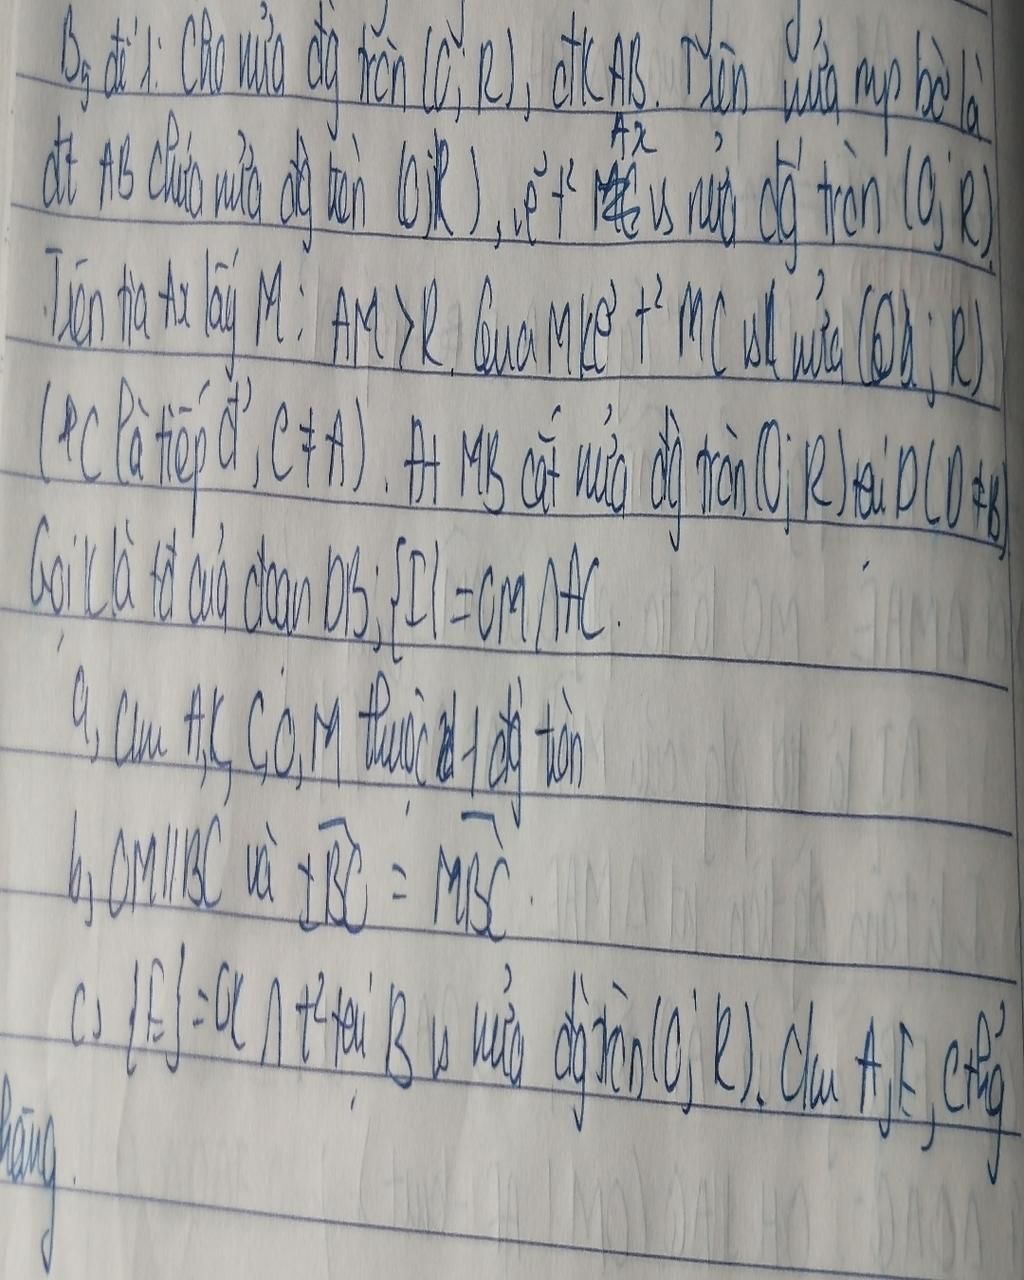 B5 đề 1: Cho nửa đg tròn (O; R), đk AB. Trên nửa mp bờ là
đt AB chứa nửa đg tròn (O;R), kẻ t² Ax vs nửa đg tròn (O; R).
Trên tia Ax lấy M: AM > R. Qua M kẻ t² MC vs nửa (O; R)
(C là tiếp đ', C ≠ A). Đt MB cắt nửa đg tròn (O; R) tại D (D ≠ B)
Gọi K là tđ của đoạn DB; {I} = OM ∩ AC.
a, Cm A, K, C, O, M thuộc 1 đg tròn
b, OM // BC và IBC = MBC.
c, {E} = OK ∩ t² tại B vs nửa đg tròn (O; R). Cm A, E, C thẳg
hàng.